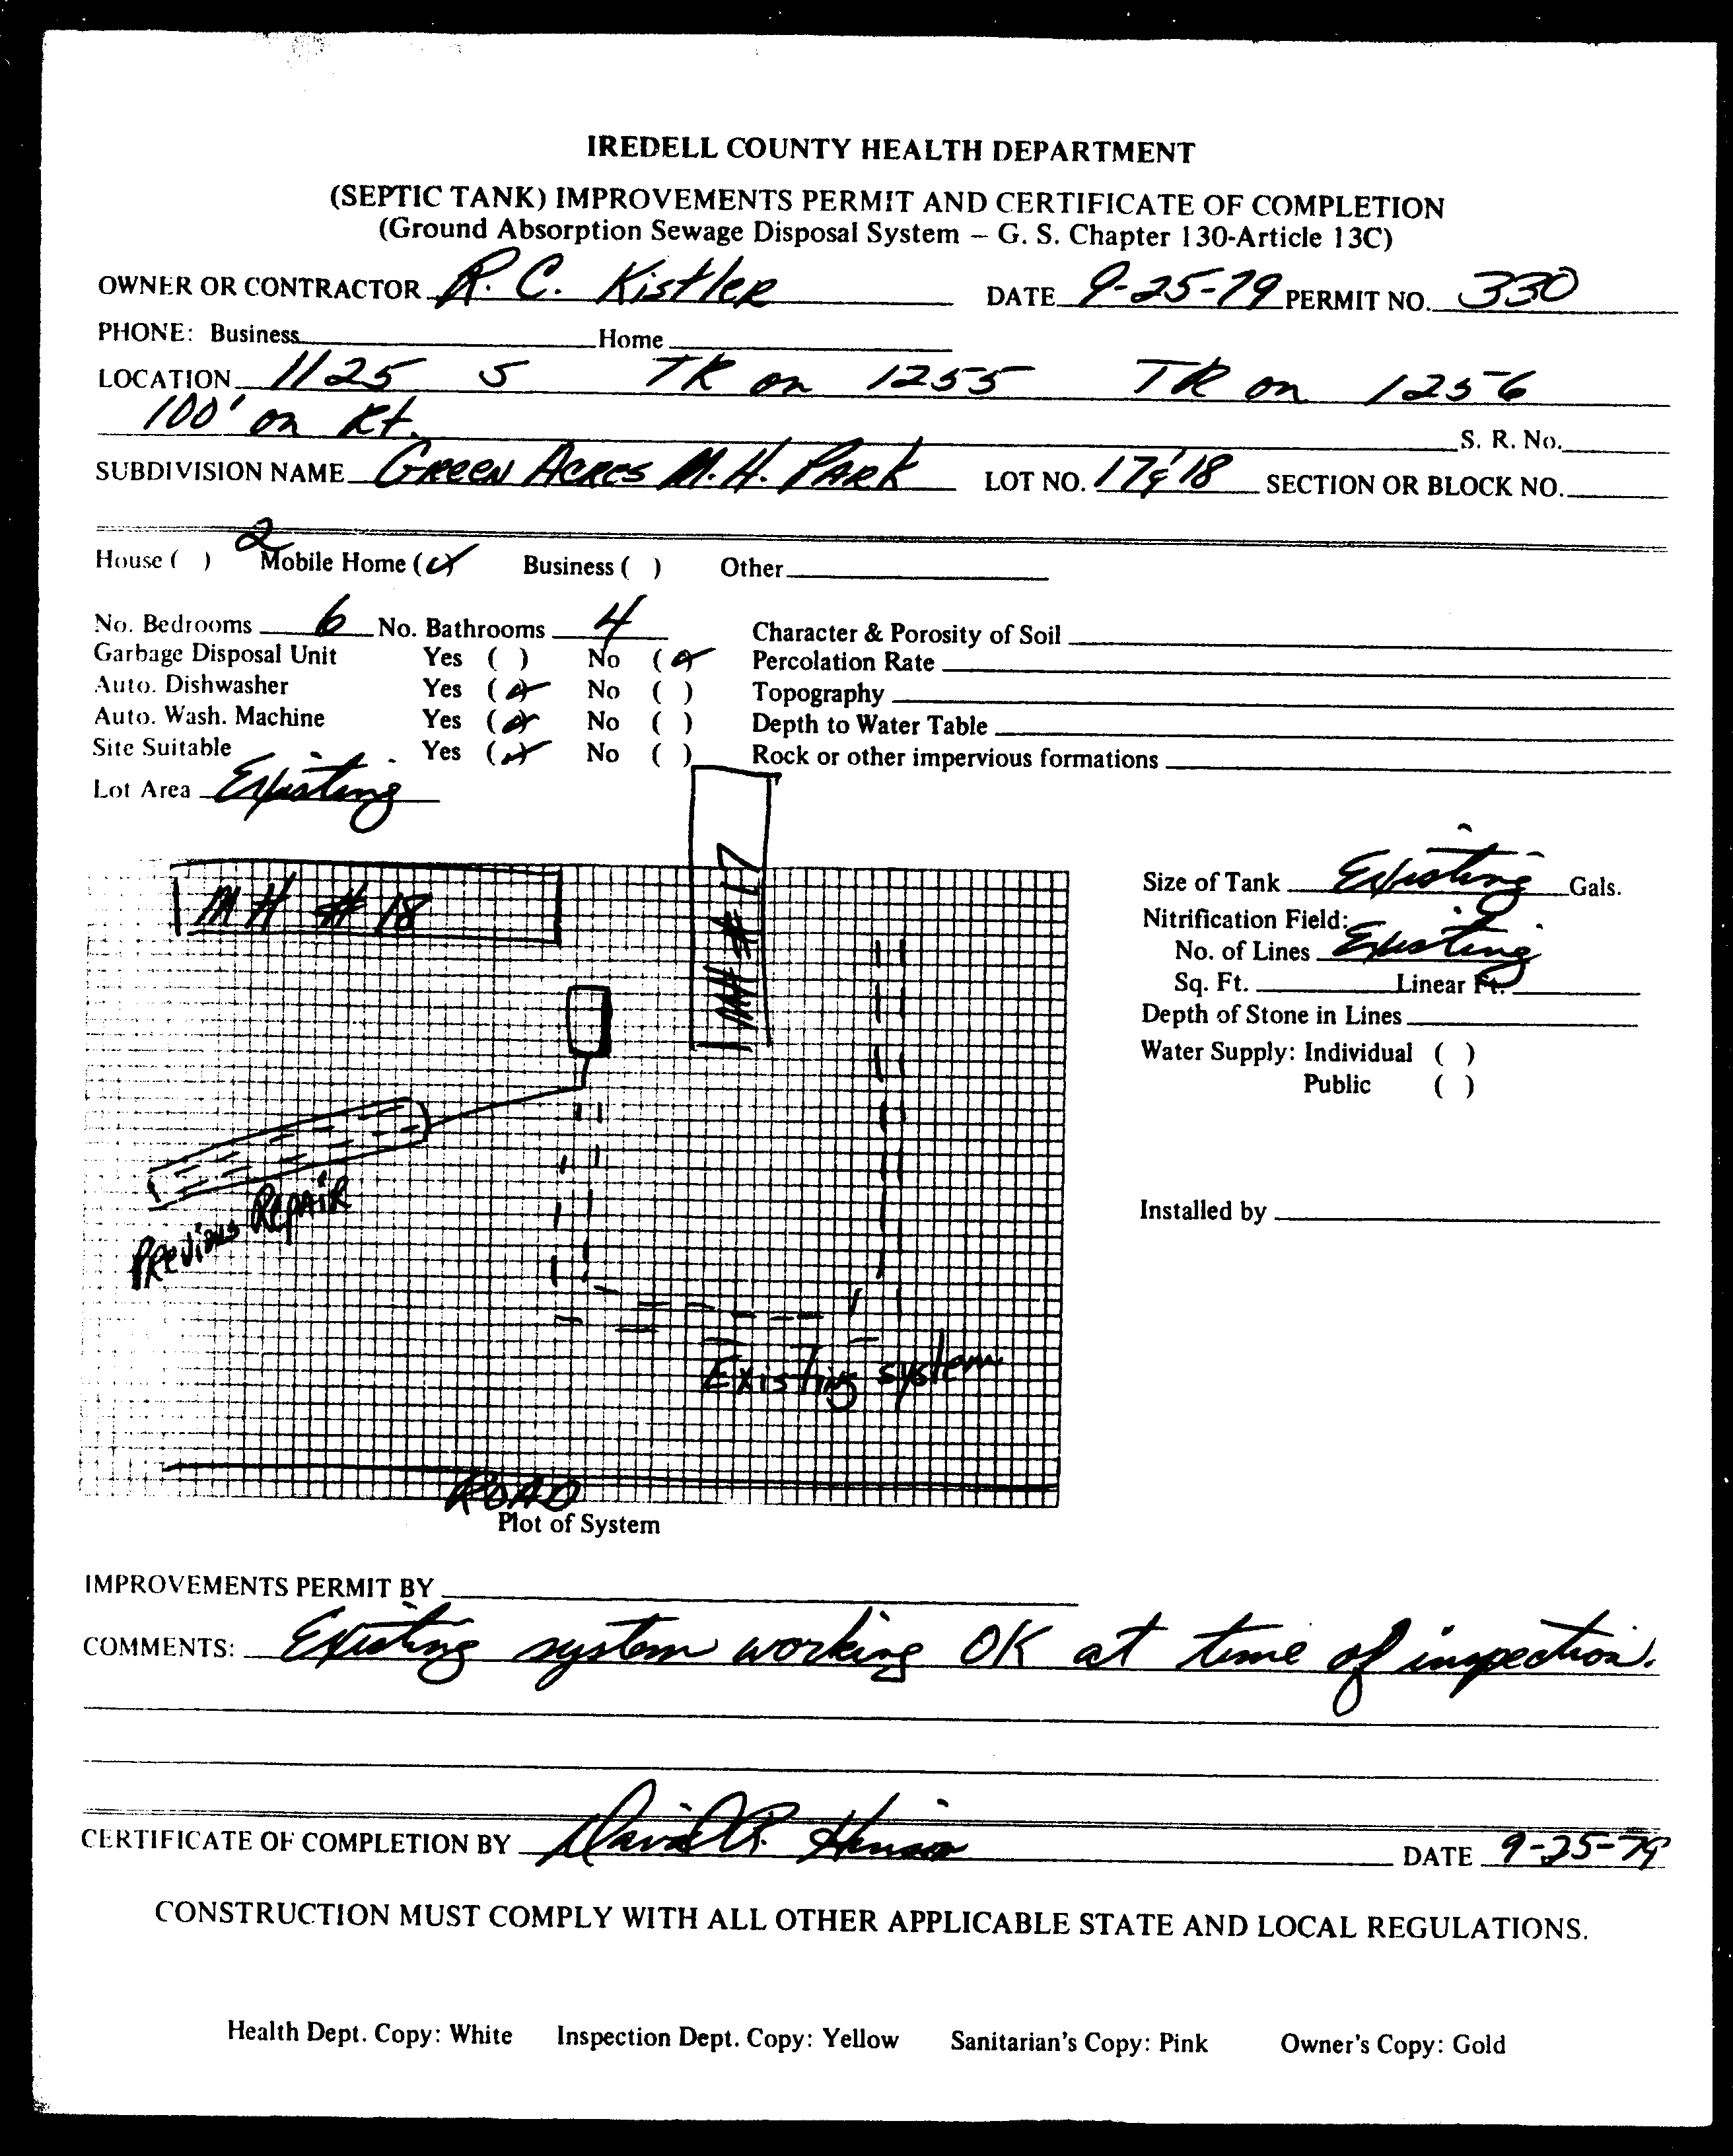 IREDELL COUNTY HEALTH DEPARTMENT
(SEPTIC TANK) IMPROVEMENTS PERMIT AND CERTIFICATE OF COMPLETION
(Ground Absorption Sewage Disposal System – G. S. Chapter 130-Article 13C)
OWNER OR CONTRACTOR R. C. Kistler DATE 9-25-79 PERMIT NO. 330
PHONE: Business Home
LOCATION 1125 S TR on 1255 TR on 1256
100' on Rt. S. R. No.
SUBDIVISION NAME Green Acres M.H. Park LOT NO. 17 & 18 SECTION OR BLOCK NO.
House ( ) 2 Mobile Home (✓) Business ( ) Other
No. Bedrooms 6 No. Bathrooms 4 Character & Porosity of Soil
Garbage Disposal Unit Yes ( ) No (✓) Percolation Rate
Auto. Dishwasher Yes (✓) No ( ) Topography
Auto. Wash. Machine Yes (✓) No ( ) Depth to Water Table
Site Suitable Yes (✓) No ( ) Rock or other impervious formations
Lot Area Existing
MH # 18
MH # 17
Size of Tank Existing Gals.
Nitrification Field:
No. of Lines Existing
Sq. Ft. Linear Ft.
Depth of Stone in Lines
Water Supply: Individual ( )
Public ( )
Previous Repair
Installed by
Existing system
ROAD
Plot of System
IMPROVEMENTS PERMIT BY
COMMENTS: Existing system working OK at time of inspection.
CERTIFICATE OF COMPLETION BY David R. Hinson DATE 9-25-79
CONSTRUCTION MUST COMPLY WITH ALL OTHER APPLICABLE STATE AND LOCAL REGULATIONS.
Health Dept. Copy: White Inspection Dept. Copy: Yellow Sanitarian's Copy: Pink Owner's Copy: Gold